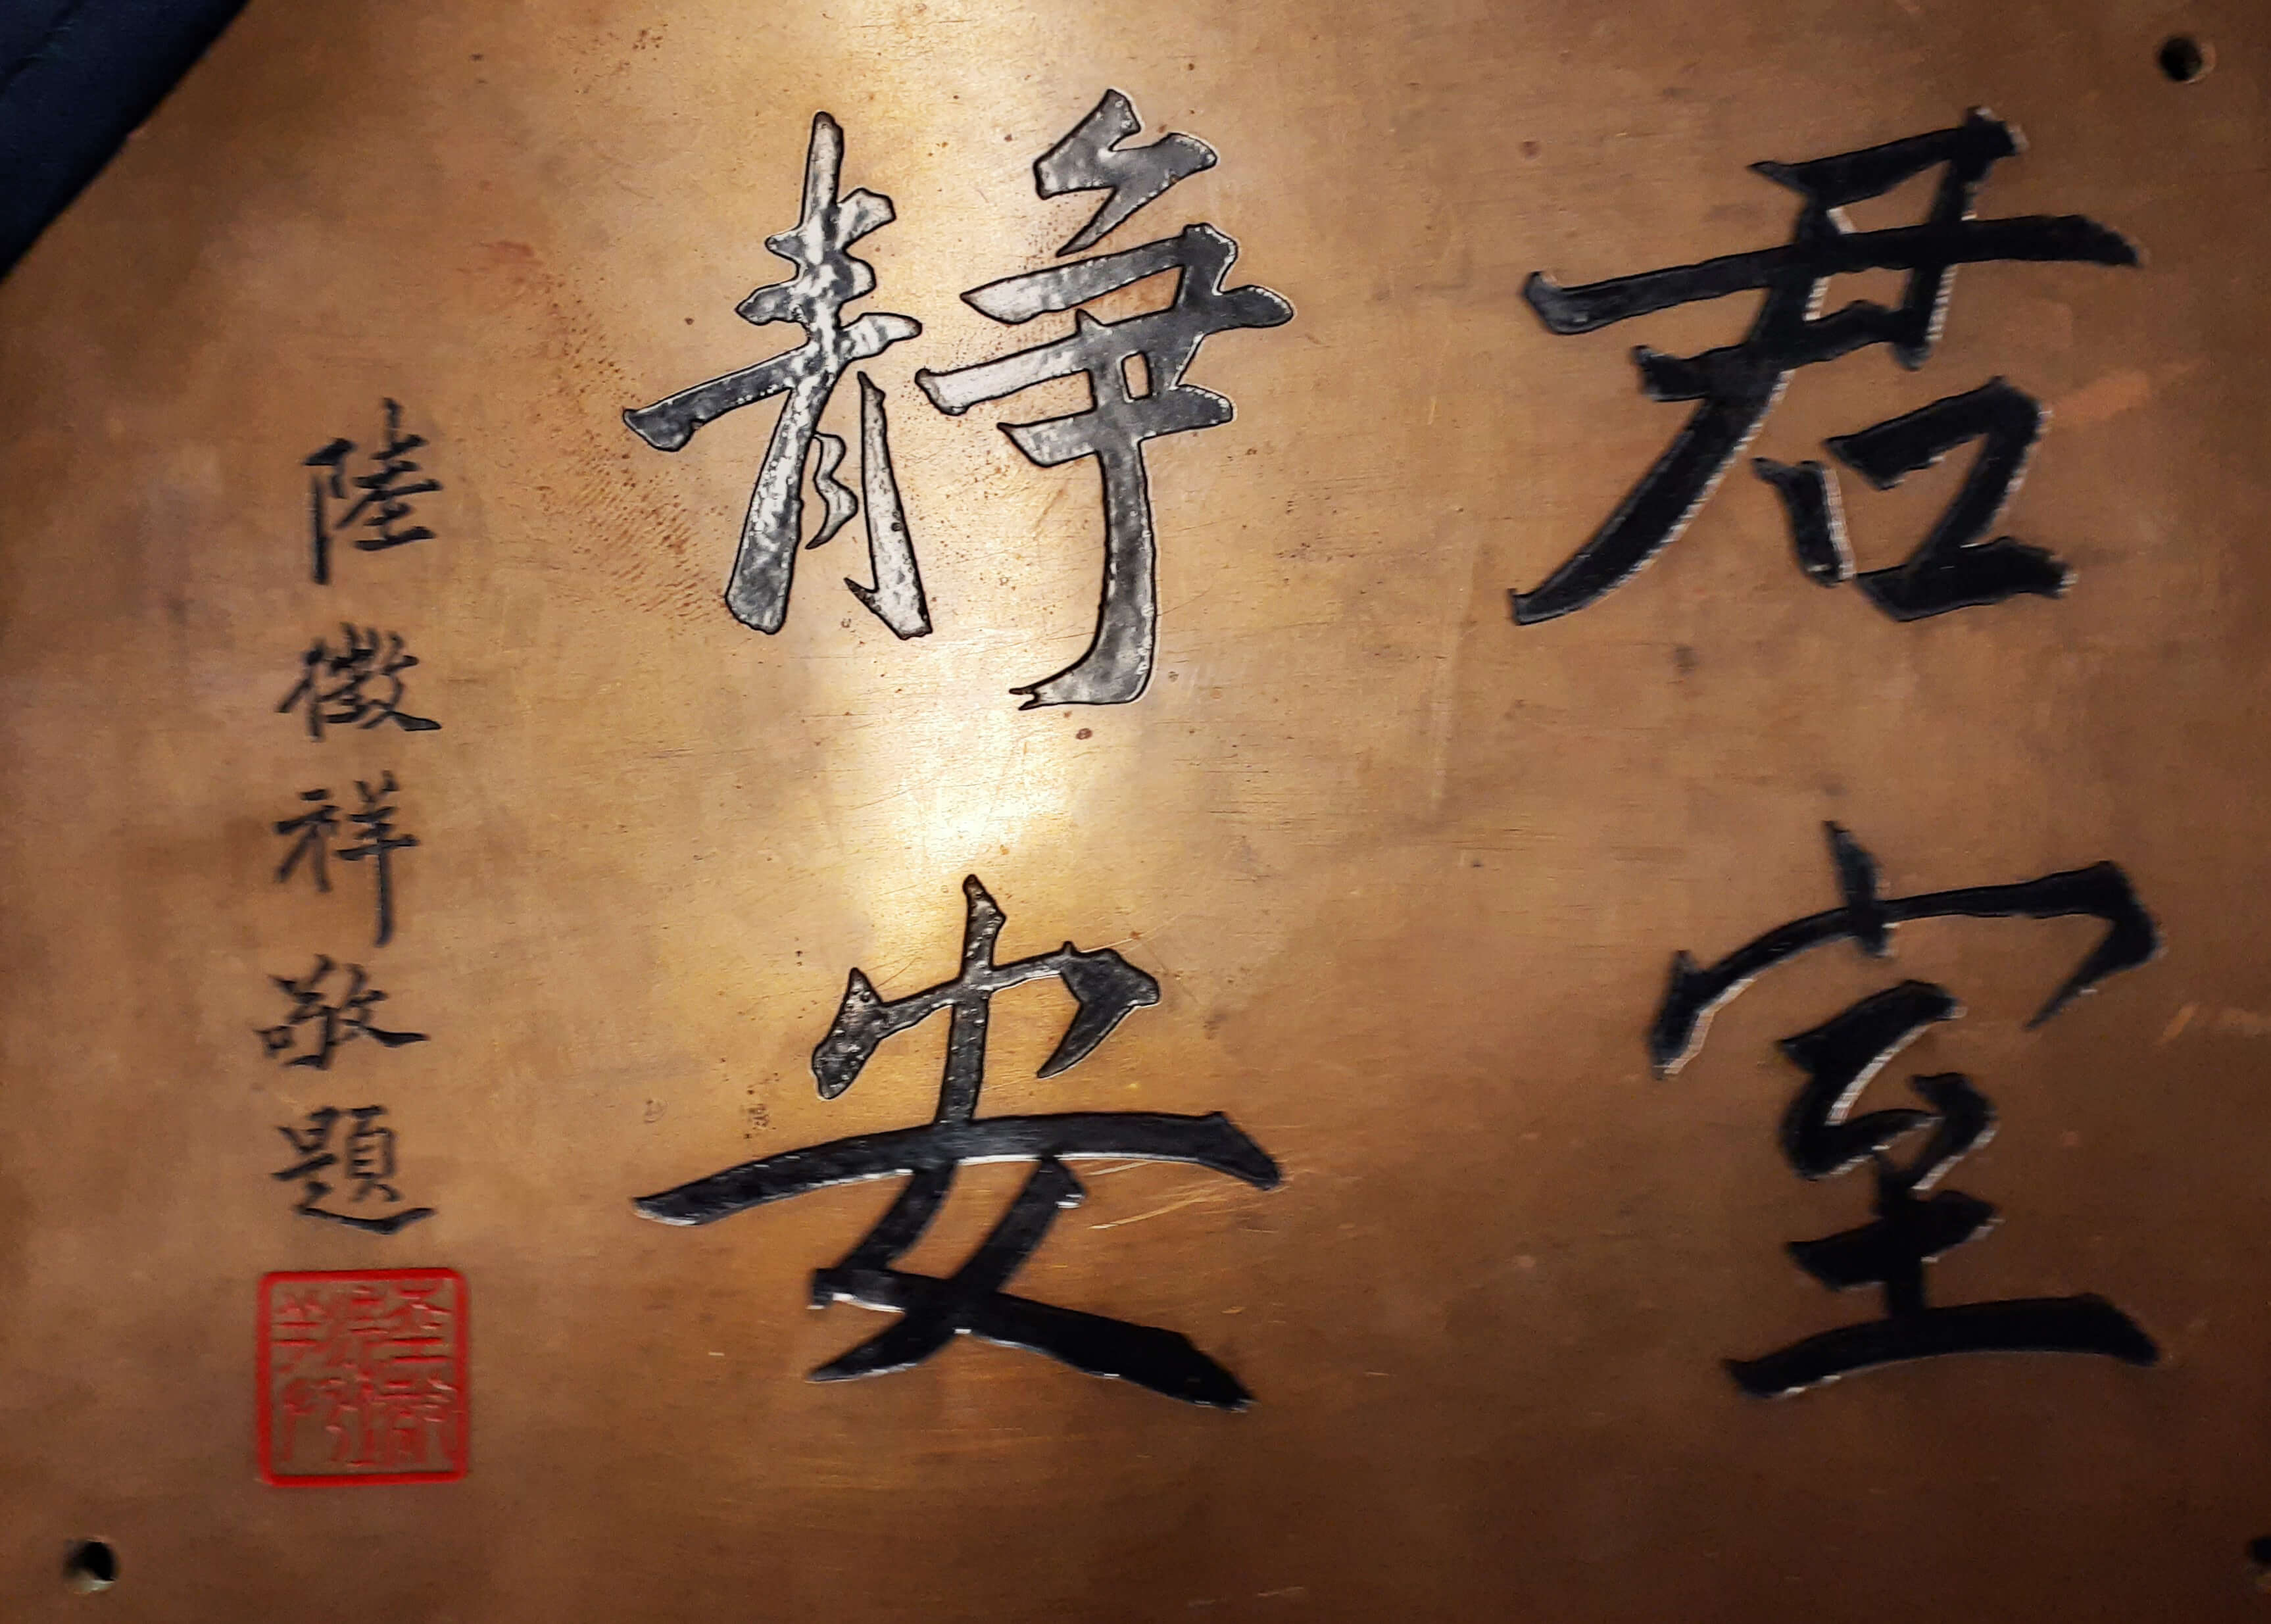 君室
靜安
陸徵祥敬題